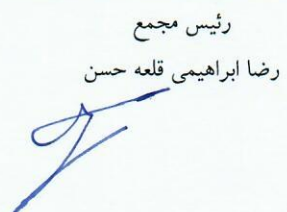 رئیس مجمع
رضا ابراهیمی قلعه حسن